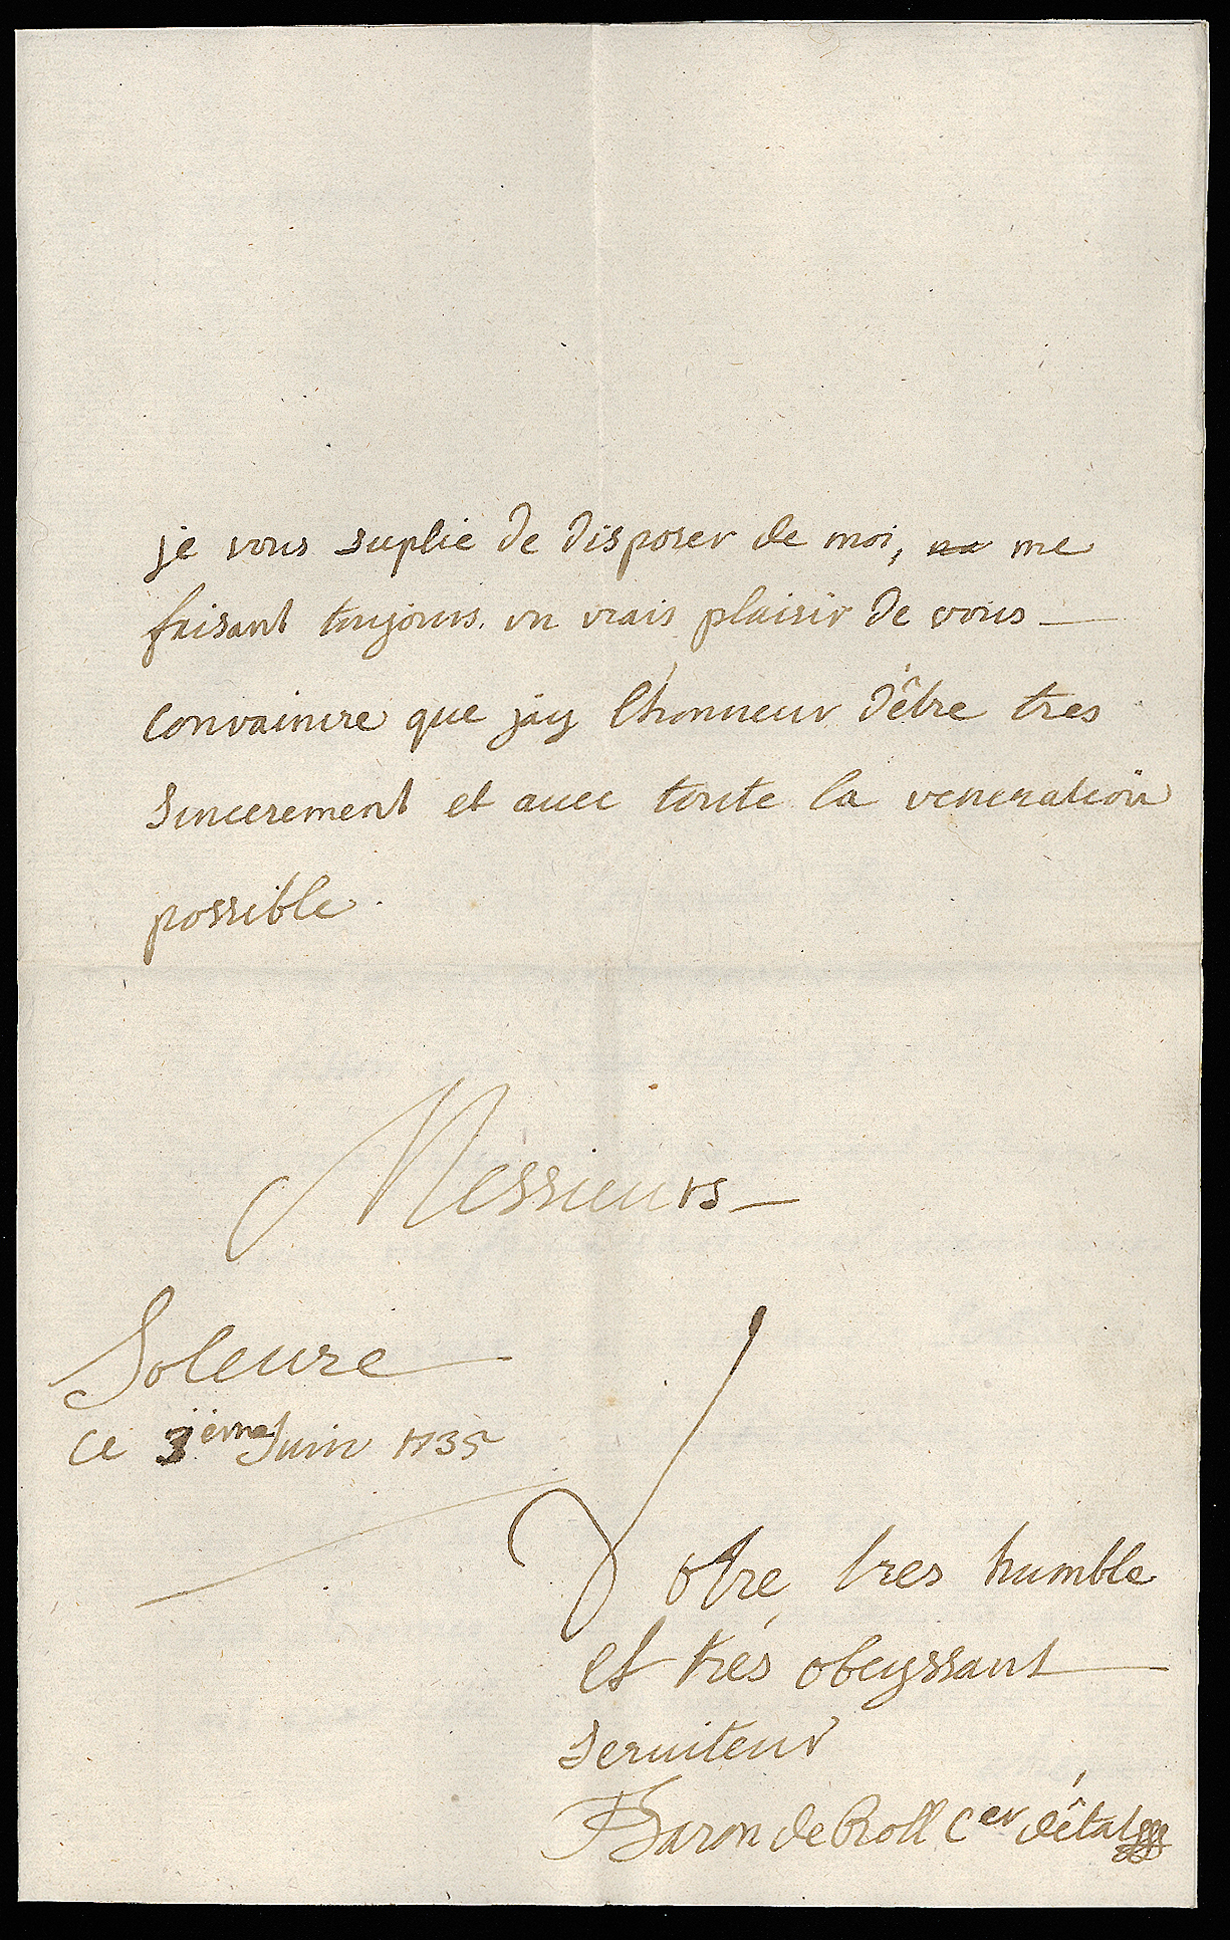 je vous suplie de disposer de moi, me
faisant toujours un vrais plaisir de vous
convaincre que j'ay l'honneur d'être tres
sincerement et avec toute la veneration
possible.
Messieurs
Soleure
ce 3ieme Juin 1735
Votre tres humble
et trés obeyssant
seruiteur
Baron de Roll Cer d'êtat